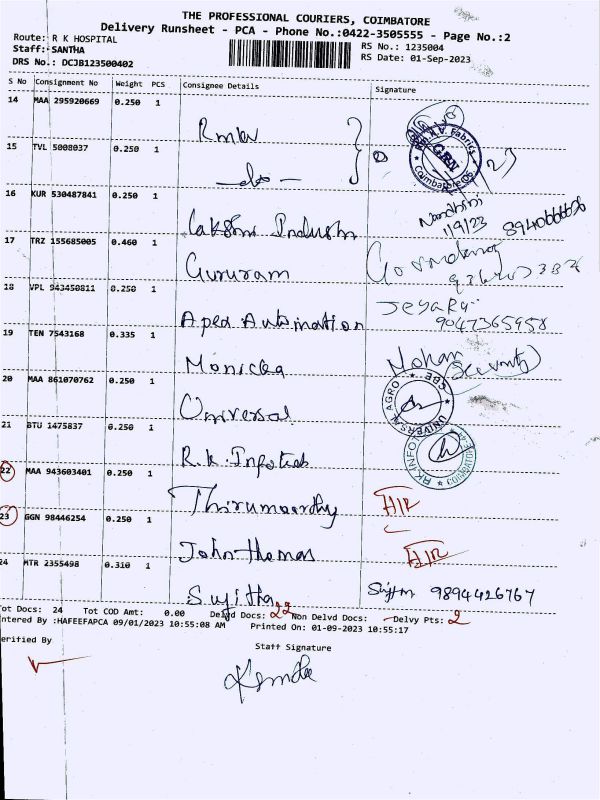 THE PROFESSIONAL COURIERS, COIMBATORE
Delivery Runsheet - PCA - Phone No.:0422-3505555 - Page No.:2
Route: R K HOSPITAL
RS No.: 1235004
Staff: SANTHA
RS Date: 01-Sep-2023
DRS No.: DCJB123500402
S No Consignment No Weight PCS Consignee Details Signature
14 MAA 295920669 0.250 1
15 TVL 5008037 0.250 1
16 KUR 530487841 0.250 1
Nandhini
1/9/23
Lakshmi Industri
17 TRZ 155685005 0.460 1
Gururam
18 VPL 943450811 0.250 1
Apex Automation
Jeyaraj
9047365958
19 TEN 7543168 0.335 1
Monicka
Mohan
Security
20 MAA 861070762 0.250 1
Universal
UNIVERSAL AGRO CBE
21 BTU 1475837 0.250 1
R.K. Infotech
RK INFOT COIMBATORE
22 MAA 943603401 0.250 1
Thirumoorthy
23 GGN 98446254 0.250 1
John thomas
24 MTR 2355498 0.310 1
Sujitha 9894426767
Tot Docs: 24 Tot COD Amt: 0.00 Delvd Docs: 22 Non Delvd Docs: Delvy Pts: 2
ntered By :HAFEEFAPCA 09/01/2023 10:55:08 AM Printed On: 01-09-2023 10:55:17
erified By
Staff Signature